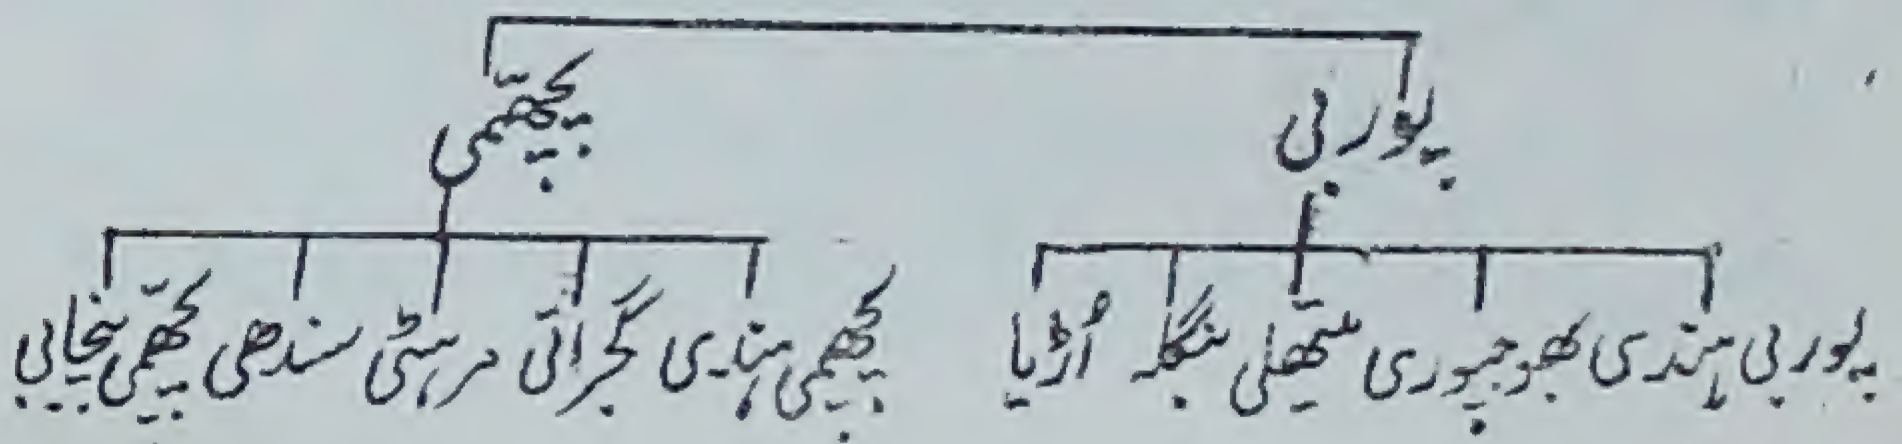 پوربی پچھمی
پوربی ہندی بھوجپوری میتھلی بنگلہ اُڑیا پچھمی ہندی گجراتی مرہٹی سندھی پچھمی پنجابی